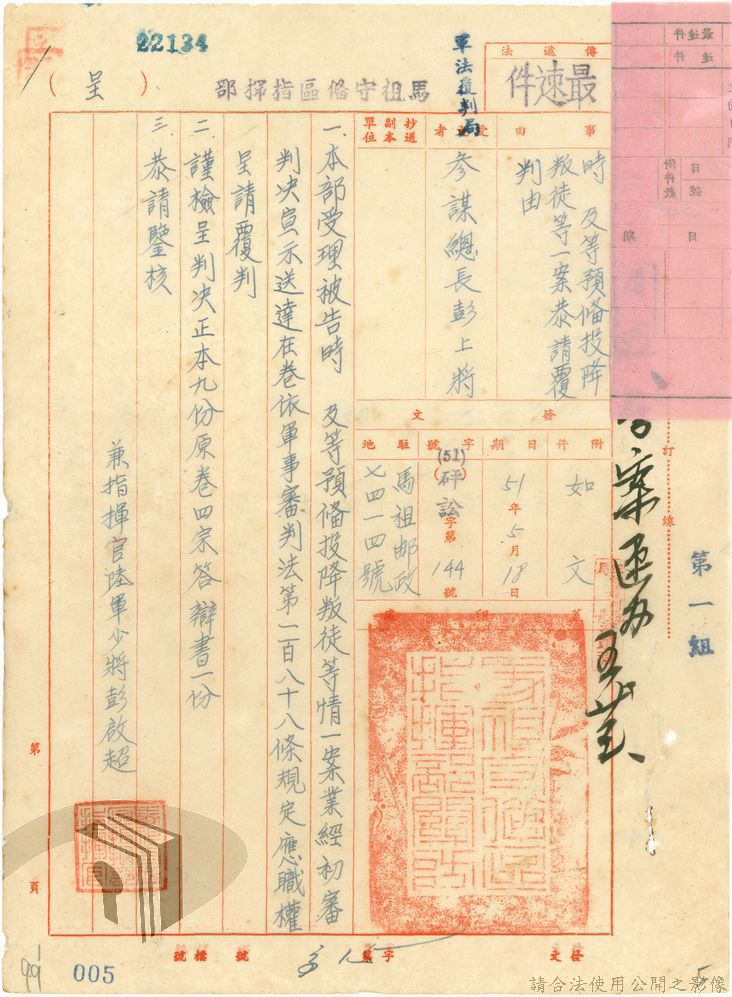 22134
馬祖守備區指揮部
(呈)
傳遞法
最速件
軍法覆判局
受文者
參謀總長彭上將
抄送副本單位
事由
時 及等預備投降
叛徒等一案恭請覆
判由
發文
附件
如文
日期
51年5月18日
字號
(51)砰訟字第144號
駐地
馬祖郵政
七四一四號
一.本部受理被告時 及等預備投降叛徒等情一案業經初審
判決宣示送達在卷依軍事審判法第二百八十八條規定應職權
呈請覆判
二.謹檢呈判決正本九份原卷四宗答辯書一份
三.恭請鑒核
兼指揮官陸軍少將彭啟超
訂線
第一組
第 頁
發文
字第
號
檔號
005
5
請合法使用公開之影像